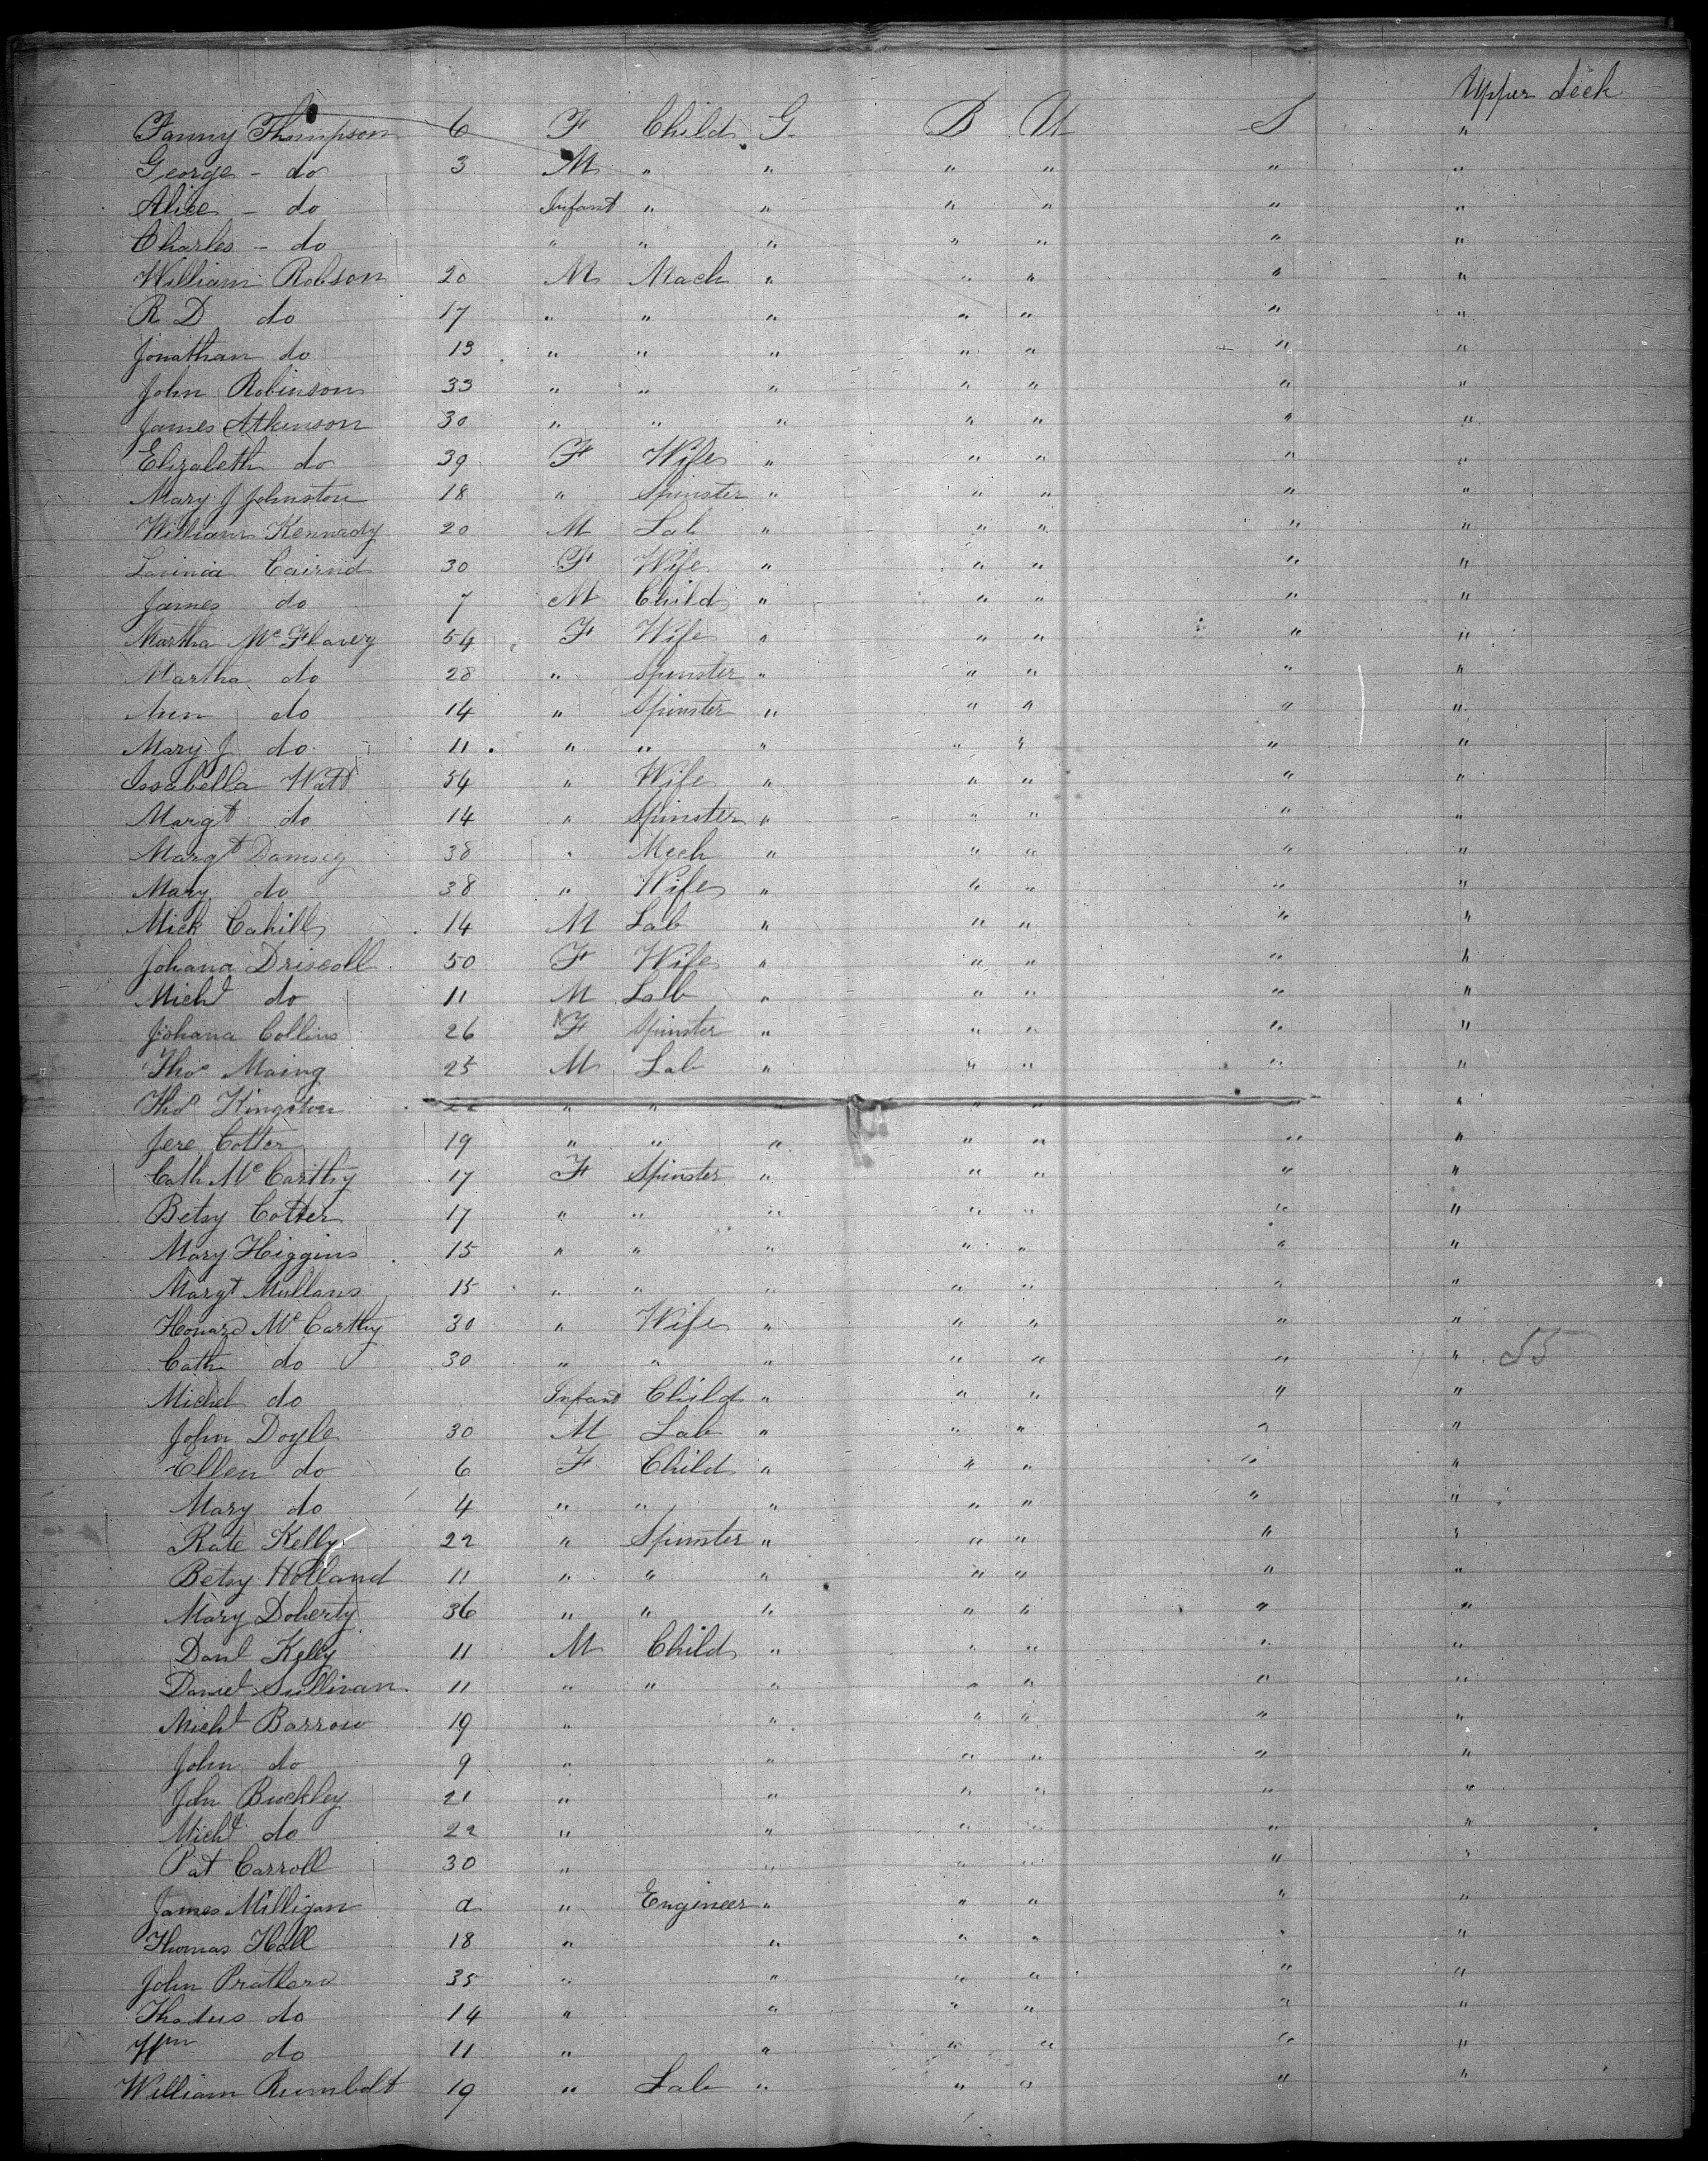 Upper deck
Fanny Thompson 6 F Child G B U S "
George - do 3 M " " " " " "
Alice - do Infant " " " " " "
Charles - do " " " " " " "
William Robson 20 M Mach " " " " "
R D do 17 " " " " " " "
Jonathan do 13 " " " " " " "
John Robinson 33 " " " " " " "
James Atkinson 30 " " " " " " "
Elizabeth do 39 F Wife " " " " "
Mary J Johnston 18 " Spinster " " " " "
William Kennedy 20 M Lab " " " " "
Lavinia Cairnd 30 F Wife " " " " "
James do 7 M Child " " " " "
Martha Mc Flavery 54 F Wife " " " " "
Martha do 28 " Spinster " " " " "
Ann do 14 " Spinster " " " " "
Mary J do 11 " " " " " " "
Issabella Watt 54 " Wife " " " " "
Margt do 14 " Spinster " " " " "
Margt 38 " Mech " " " " "
Mary do 38 " Wife " " " " "
Mick Cahill 14 M Lab " " " " "
Johana Driscoll 50 F Wife " " " " "
Michl do 11 M Lab " " " " "
Johana Collins 26 F Spinster " " " " "
Thos Maing 25 M Lab " " " " "
Thos Kingston " " " " " "
Jere Cotter 19 " " " " " " "
Cath Mc Carthy 17 F Spinster " " " " "
Betsy Cotter 17 " " " " " " "
Mary Higgins 15 " " " " " " "
Margt Mullans 15 " " " " " " "
Honard Mc Carthy 30 " Wife " " " " "
Cath do 30 " " " " " " " 55
Michel do Infant Child " " " " "
John Doyle 30 M Lab " " " " "
Ellen do 6 F Child " " " " "
Mary do 4 " " " " " " "
Kate Kelly 22 " Spinster " " " " "
Betsy Holland 11 " " " " " " "
Mary Doherty 36 " " " " " " "
Danl Kelly 11 M Child " " " " "
Daniel Sullivan 11 " " " " " " "
Michl Barrow 19 " " " " " "
John do 9 " " " " " "
John Buckley 21 " " " " " "
Michl do 22 " " " " " "
Pat Carroll 30 " " " " " "
James Milligan a " Engineer " " " " "
Thomas Hall 18 " " " " " "
John 35 " " " " " "
Thadus do 14 " " " " " "
Wm do 11 " " " " " "
William Rumbolt 19 " Lab " " " " "